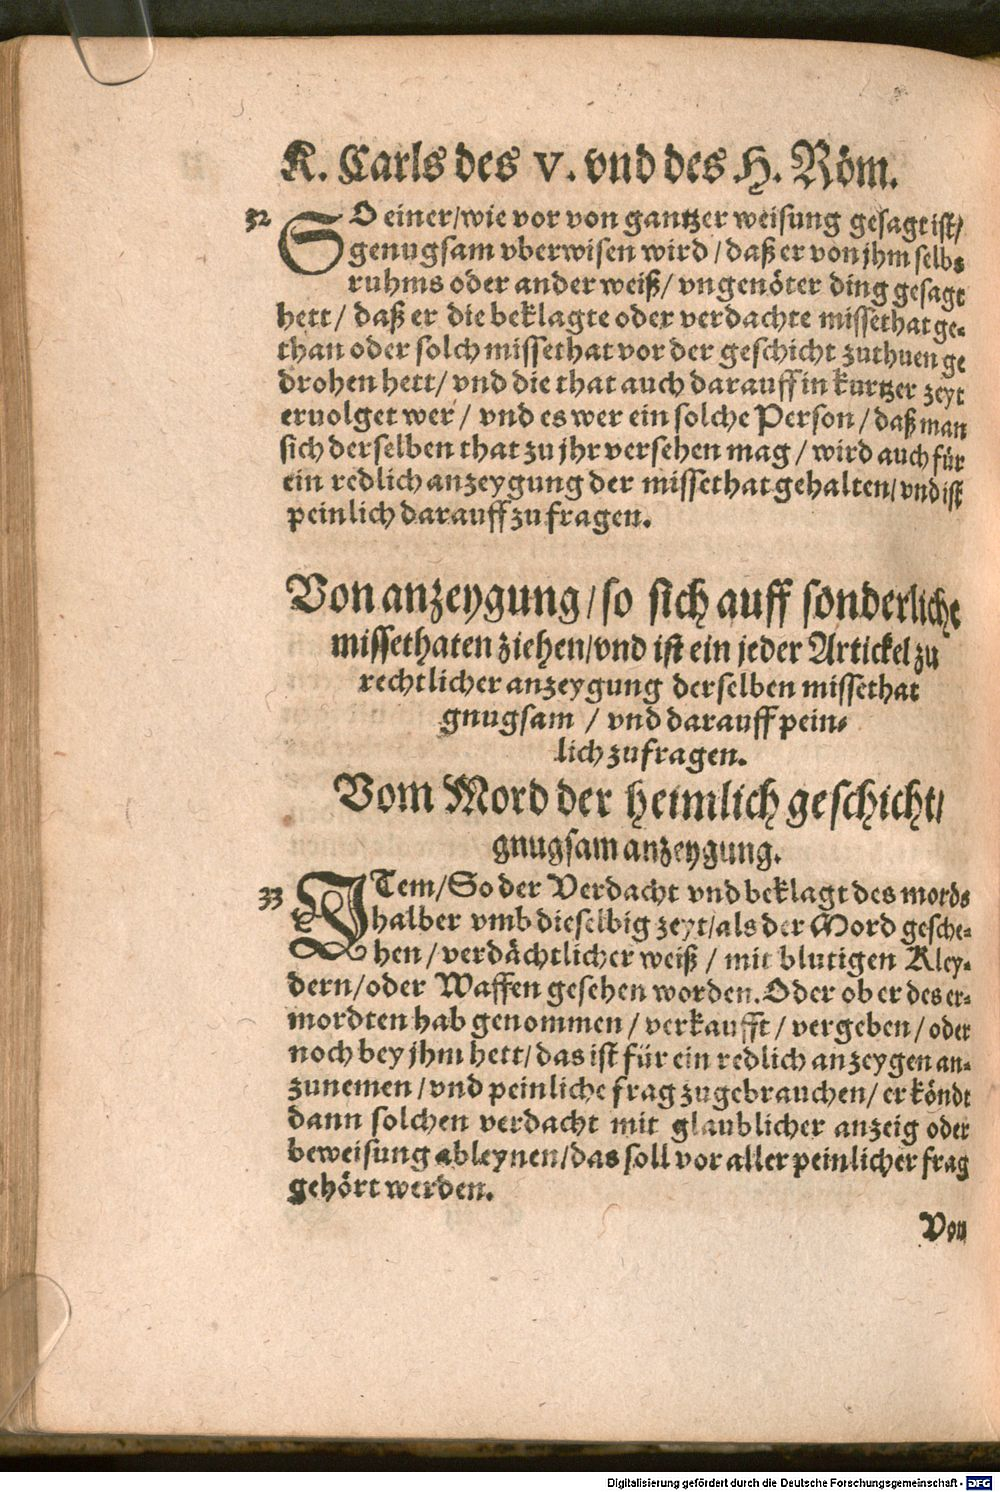 K. Carls des V. vnd des H. Röm.
32 SO einer/wie vor von gantzer weisung gesagt ist/
genugsam vberwisen wird/daß er von jhm selbs
ruhms oder ander weiß/ vngenöter ding gesagt
hett/ daß er die beklagte oder verdachte missethat ge-
than oder solch missethat vor der geschicht zuthuen ge
drohen hett/ vnd die that auch darauff in kurtzer zeyt
eruolget wer/ vnd es wer ein solche Person/ daß man
sich derselben that zu jhr versehen mag/ wird auch für
ein redlich anzeygung der missethat gehalten/ vnd ist
peinlich darauff zu fragen.
Von anzeygung/so sich auff sonderliche
missethaten ziehen/vnd ist ein jeder Artickel zu
rechtlicher anzeygung derselben missethat
gnugsam / vnd darauff pein-
lich zufragen.
Vom Mord der heimlich geschicht/
gnugsam anzeygung.
33 ITem/So der Verdacht vnd beklagt des mords
halber vmb dieselbig zeyt/als der Mord gesche-
hen/verdächtlicher weiß/ mit blutigen Kley-
dern/oder Waffen gesehen worden. Oder ob er des er-
mordten hab genommen/ verkaufft/ vergeben/ oder
noch bey jhm hett/das ist für ein redlich anzeygen an-
zunemen/vnd peinliche frag zugebrauchen/ er köndt
dann solchen verdacht mit glaublicher anzeig oder
beweisung ableynen/das soll vor aller peinlicher frag
gehört werden.
Von
Digitalisierung gefördert durch die Deutsche Forschungsgemeinschaft - DFG